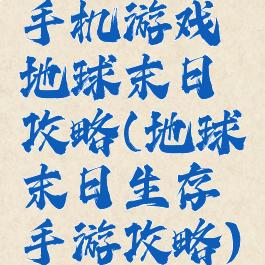 手机游戏
地球末日
攻略(地球
末日生存
手游攻略)